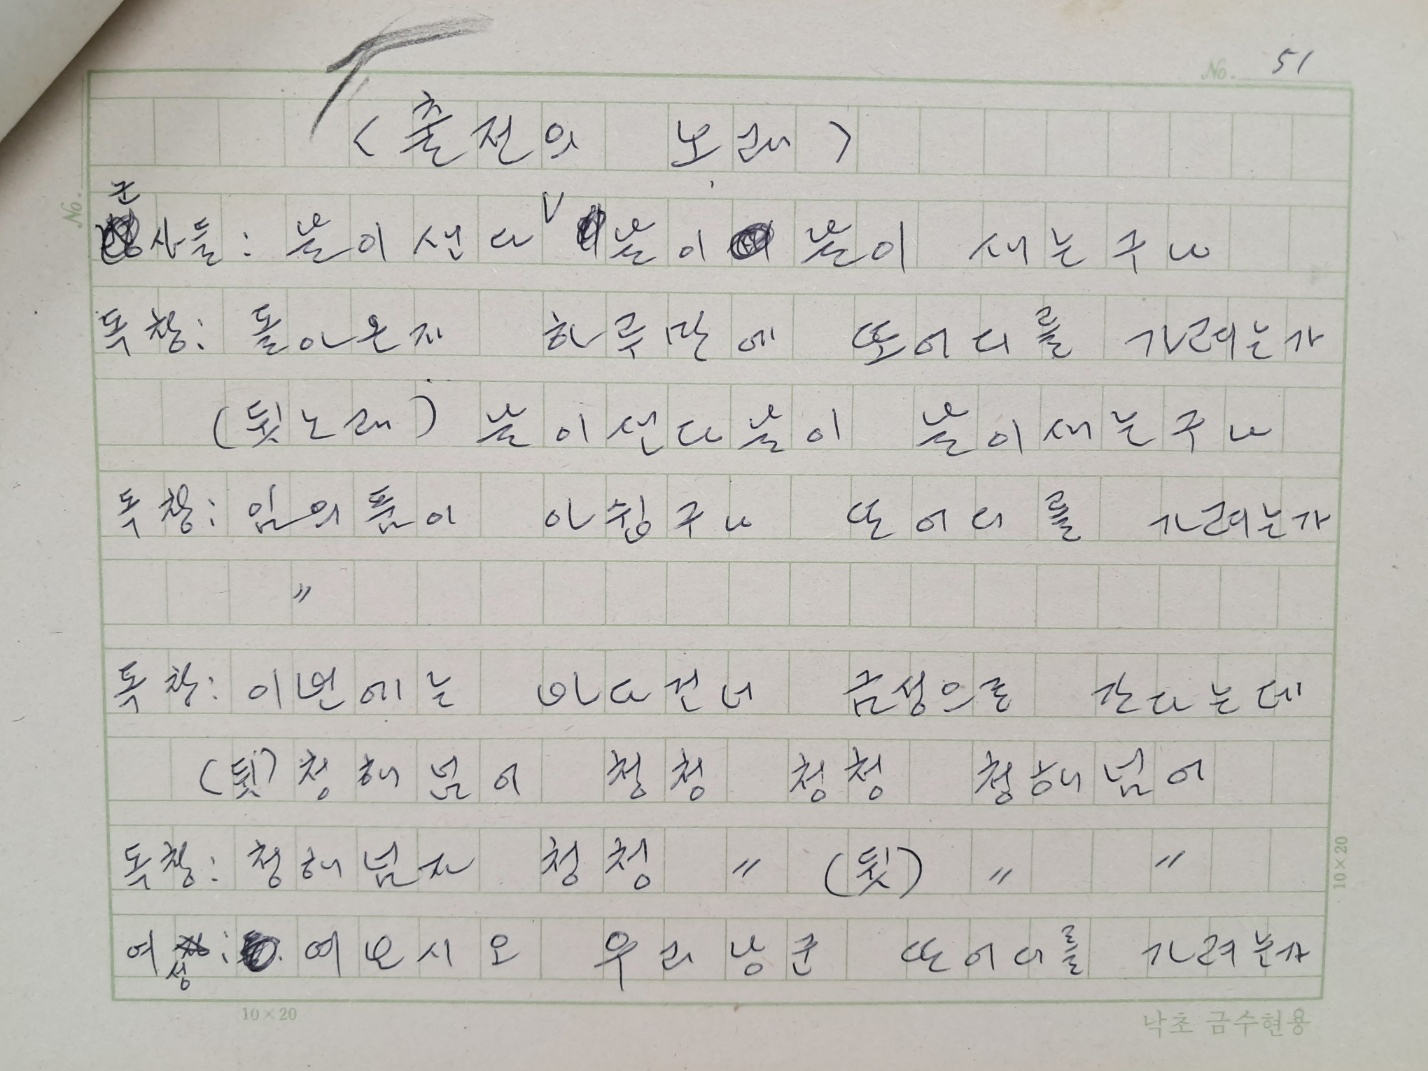 No. 51
<출전의 노래>
군사들: 날이샌다 날이 날이 새는구나
독창: 돌아온지 하루만에 또어디를 가려는가
(뒷노래) 날이샌다날이 날이새는구나
독창: 임의품이 아쉽구나 또어디를 가려는가
〃
독창: 이번에는 바다건너 금성으로 간다는데
(뒷) 청해넘어 청청 청청 청해넘어
독창: 청해넘자 청청 〃 (뒷) 〃 〃
여성: 여보시오 우리낭군 또어디를 가려는가
10×20
10×20
낙초 금수현용
No.